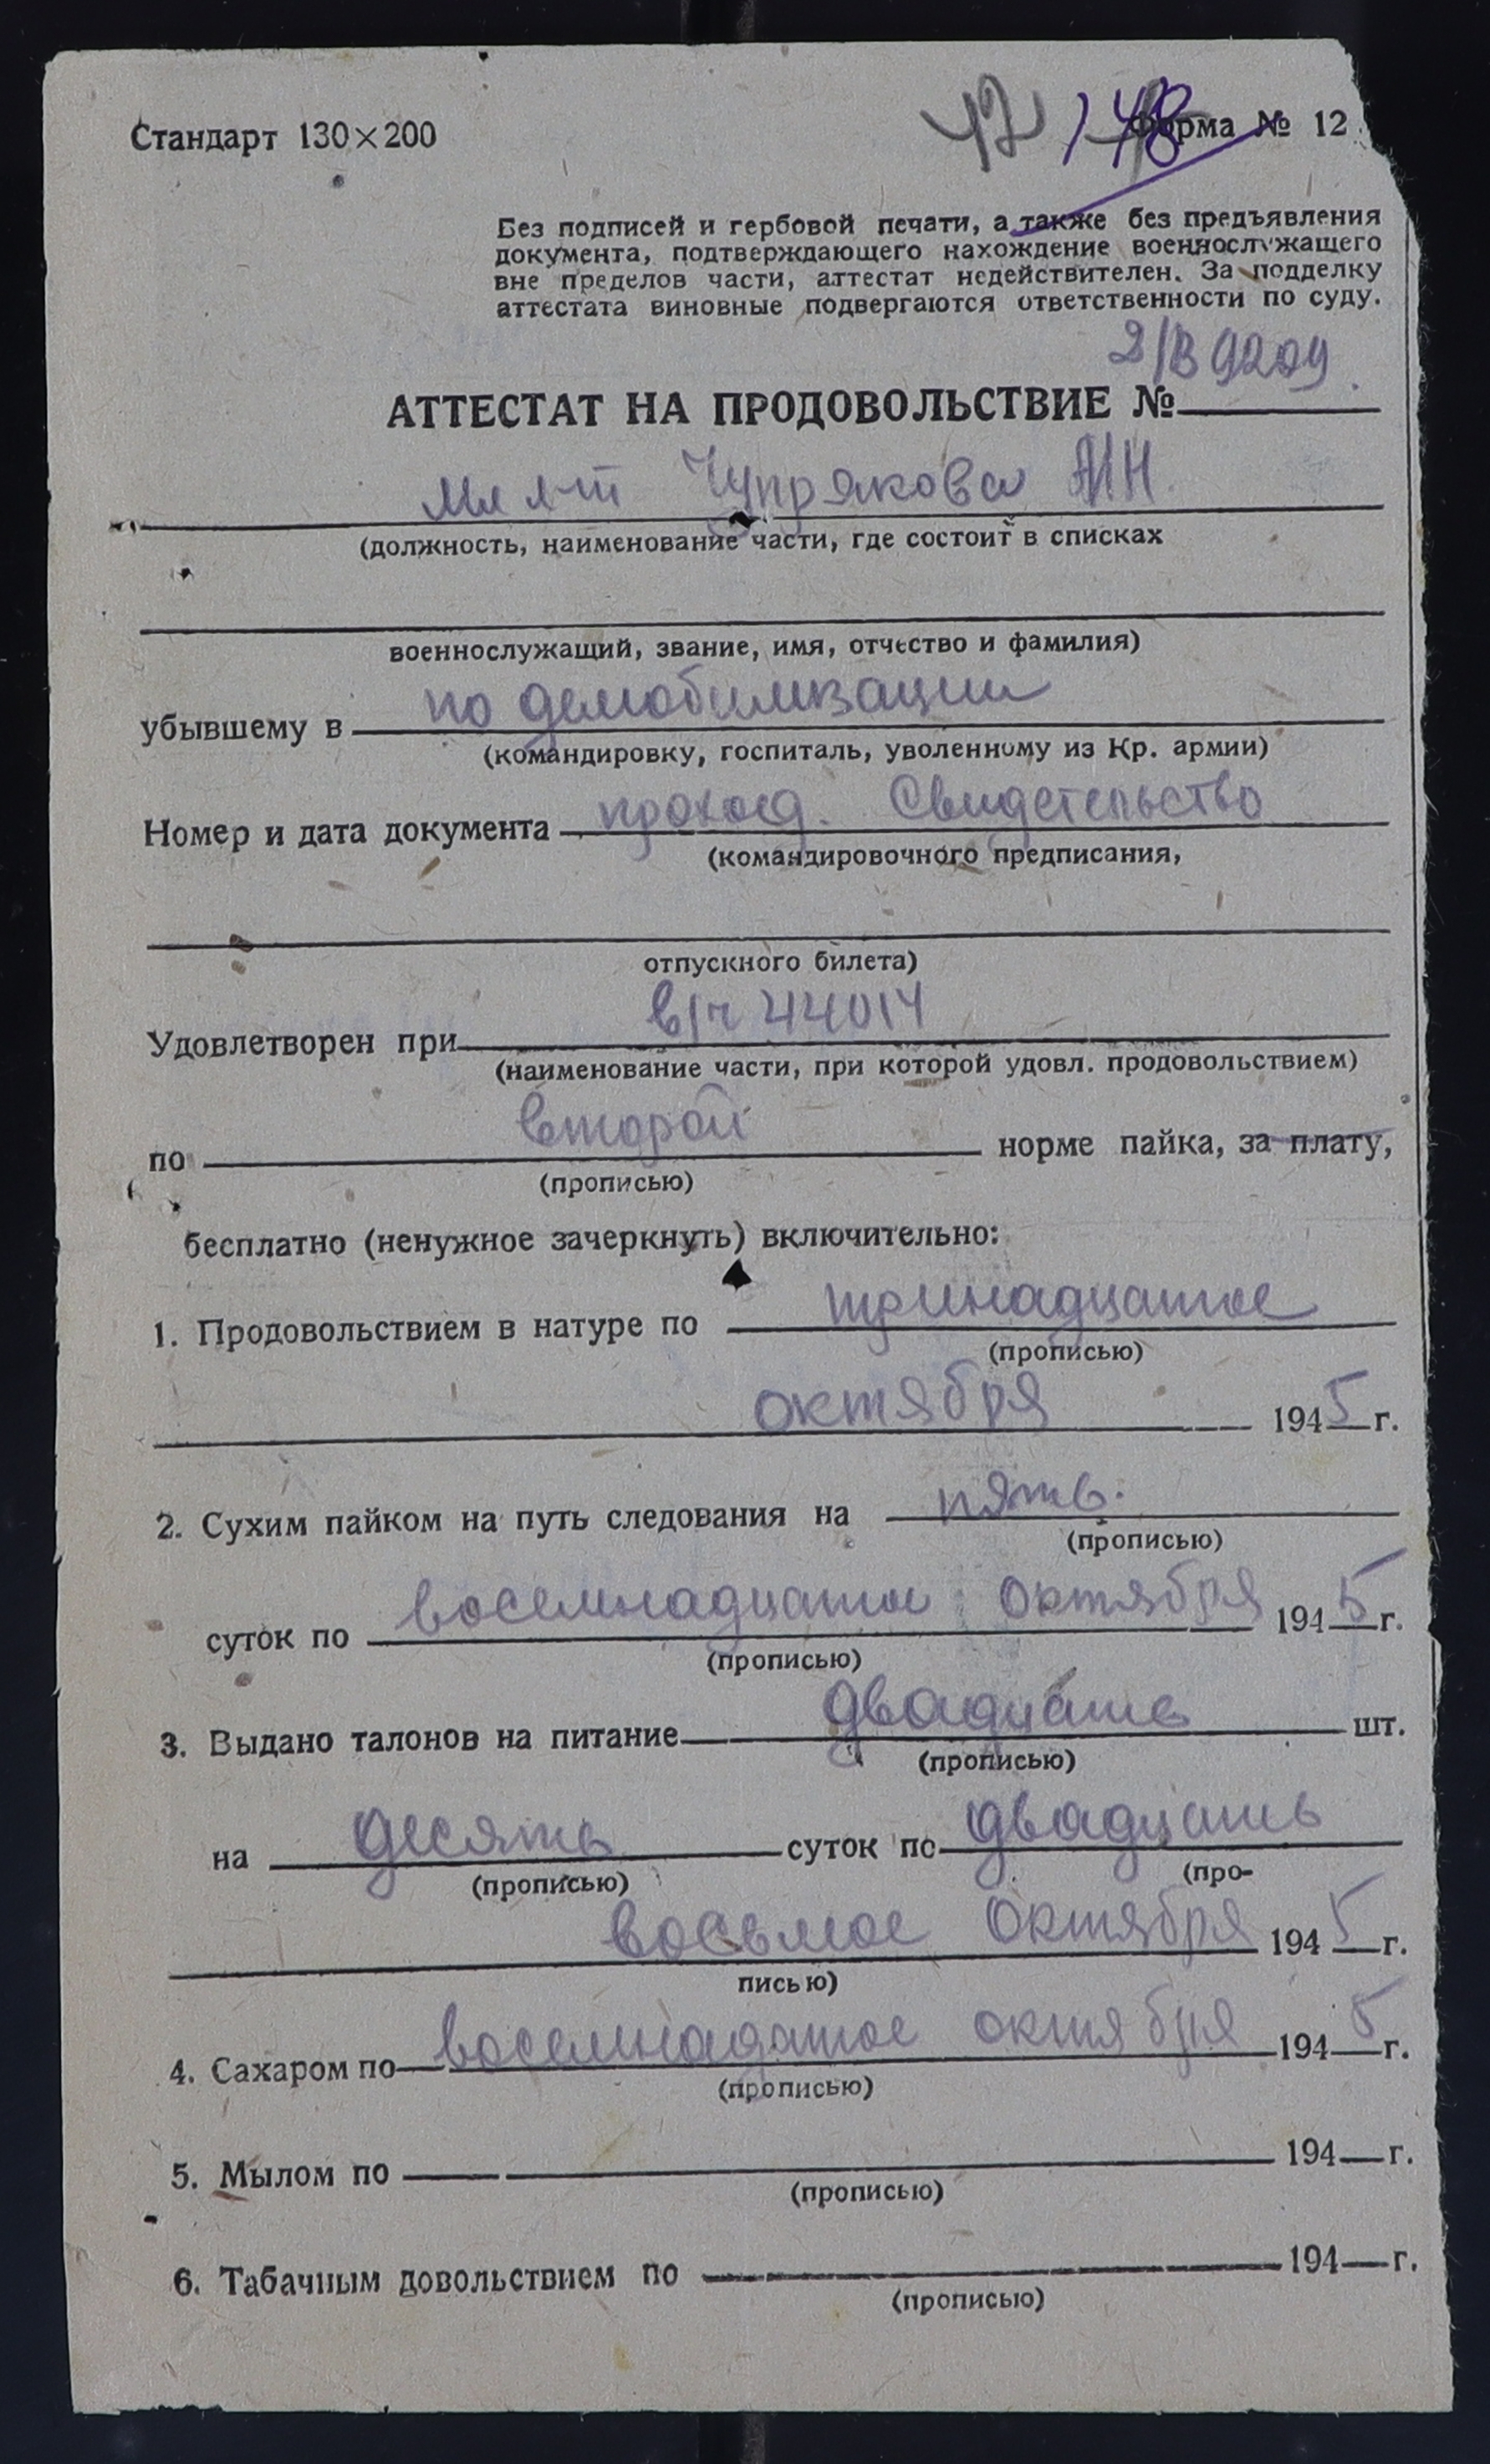 42 148
Стандарт 130×200 Форма № 12
Без подписей и гербовой печати, а также без предъявления
документа, подтверждающего нахождение военнослужащего
вне пределов части, аттестат недействителен. За подделку
аттестата виновные подвергаются ответственности по суду.
2/В 9209
АТТЕСТАТ НА ПРОДОВОЛЬСТВИЕ №
Мл л-т Чупрякова АН
(должность, наименование части, где состоит в списках
военнослужащий, звание, имя, отчество и фамилия)
убывшему в по демобилизации
(командировку, госпиталь, уволенному из Кр. армии)
Номер и дата документа проход. Свидетельство
(командировочного предписания,
отпускного билета)
Удовлетворен при в/ч 44014
(наименование части, при которой удовл. продовольствием)
по второй норме пайка, за плату,
(прописью)
бесплатно (ненужное зачеркнуть) включительно:
1. Продовольствием в натуре по тринадцатое
(прописью)
октября 1945 г.
2. Сухим пайком на путь следования на пять.
(прописью)
суток по восемнадцатое октября 1945 г.
(прописью)
3. Выдано талонов на питание двадцать шт.
(прописью)
на десять суток по двадцать
(прописью) (про-
восьмое октября 1945 г.
писью)
4. Сахаром по восемнадатое октября 1945 г.
(прописью)
5. Мылом по 194 г.
(прописью)
6. Табачным довольствием по 194 г.
(прописью)